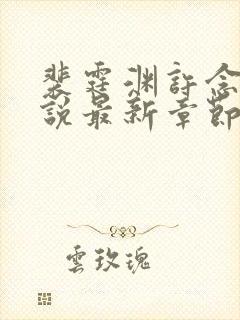 裴霆渊許念
說最新章節
雲玫瑰